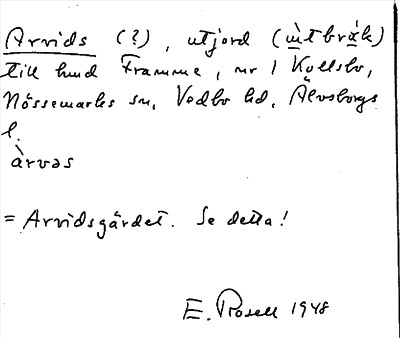 Arvids (?), utjord (ùtbràk)
till hmd Framme, nr 1 Kullsbo,
Nössemarks sn, Vedbo hd, Älvsborgs
l.
àrvəs
= Arvidsgärdet. Se detta!
E. Rosell 1948